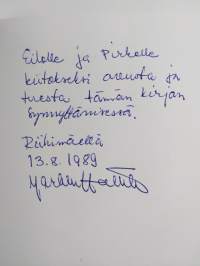 Eilolle ja Pirkolle
kiitokseksi avusta ja
tuesta tämän kirjan
synnyttämisessä.
Riihimäellä
13.8.1989